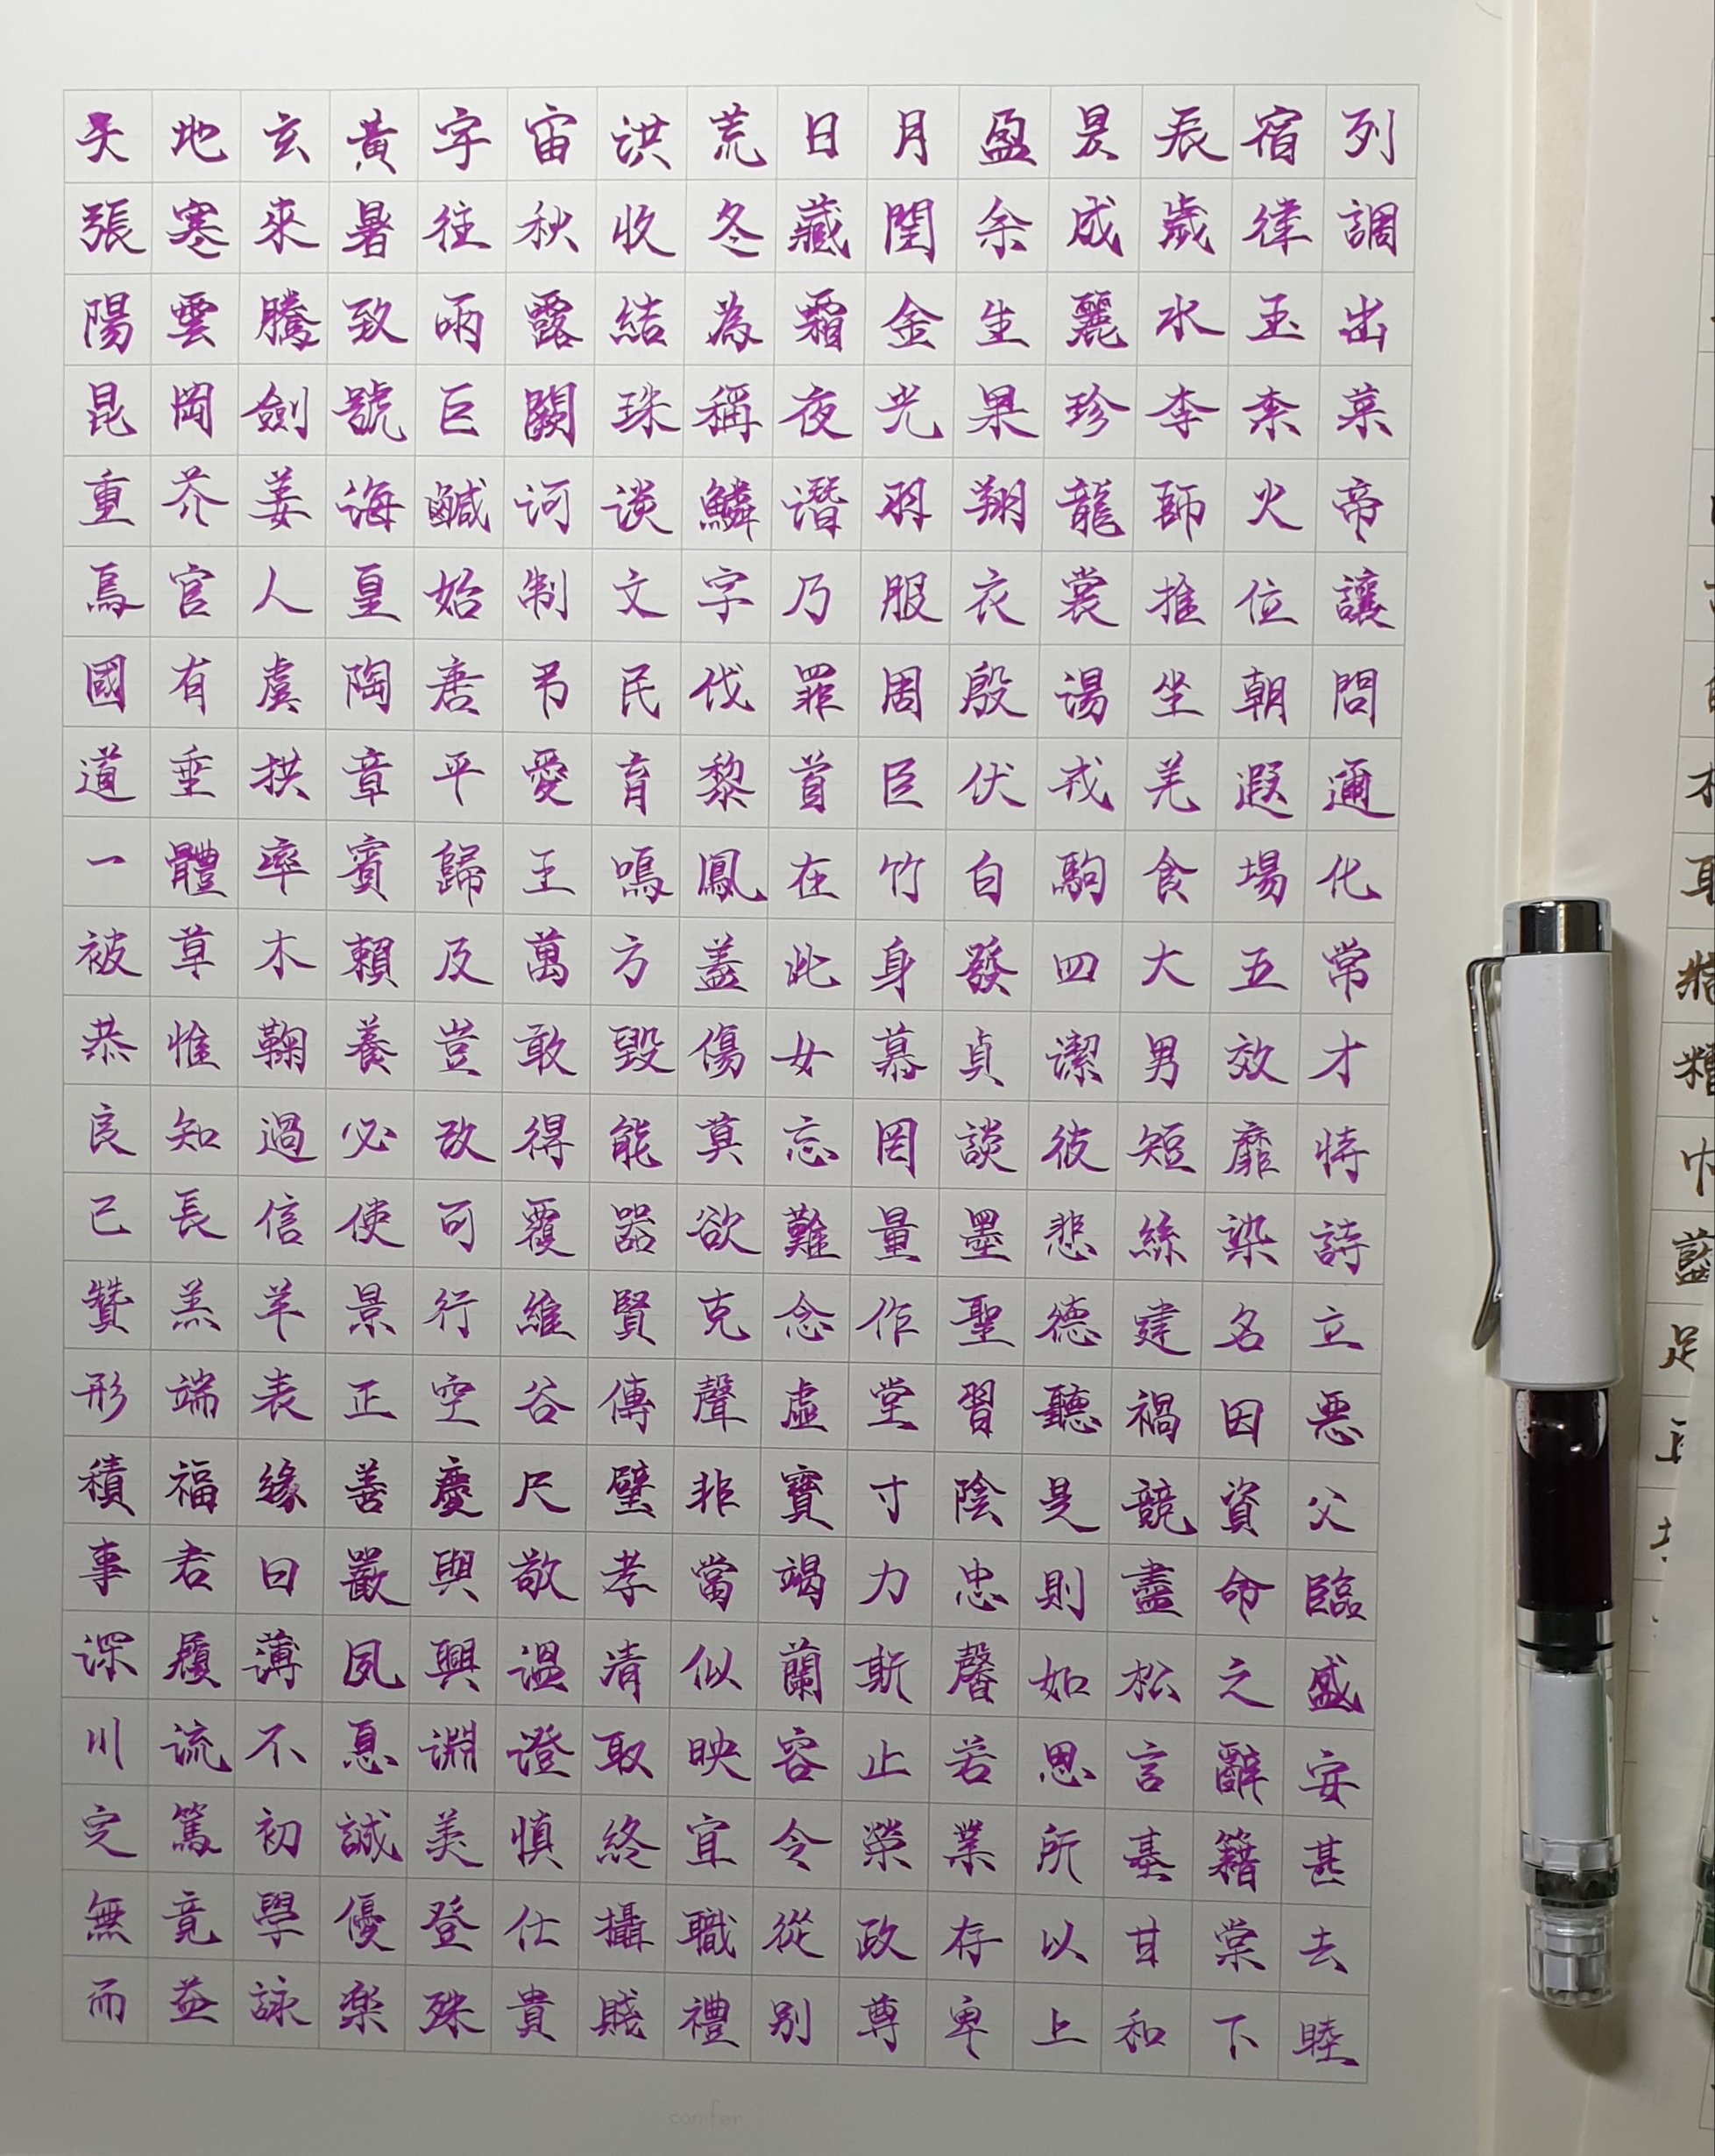 天地玄黃宇宙洪荒日月盈昃辰宿列
張寒來暑往秋收冬藏閏余成歲律調
陽雲騰致雨露結為霜金生麗水玉出
昆岡劍號巨闕珠稱夜光果珍李柰菜
重芥姜海鹹河淡鱗潛羽翔龍師火帝
鳥官人皇始制文字乃服衣裳推位讓
國有虞陶唐弔民伐罪周殷湯坐朝問
道垂拱章平愛育黎首臣伏戎羌遐邇
一體率賓歸王鳴鳳在竹白駒食場化
被草木賴及萬方蓋此身發四大五常
恭惟鞠養豈敢毀傷女慕貞潔男效才
良知過必改得能莫忘罔談彼短靡恃
己長信使可覆器欲難量墨悲絲染詩
贊羔羊景行維賢克念作聖德建名立
形端表正空谷傳聲虛堂習聽禍因惡
積福緣善慶尺璧非寶寸陰是競資父
事君曰嚴與敬孝當竭力忠則盡命臨
深履薄夙興溫清似蘭斯馨如松之盛
川流不息淵澄取映容止若思言辭安
定篤初誠美慎終宜令榮業所基籍甚
無竟學優登仕攝職從政存以甘棠去
而益詠樂殊貴賤禮別尊卑上和下睦
conifer